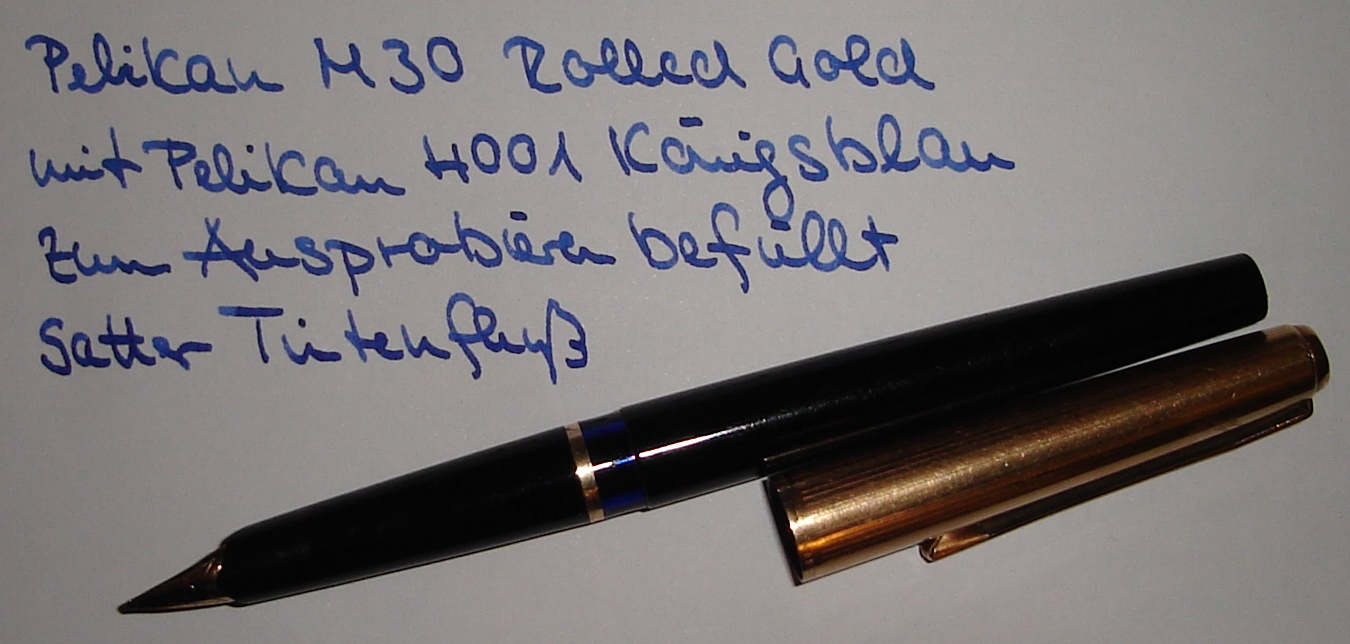 Pelikan M30 Rolled Gold
mit Pelikan 4001 Königsblau
zum Ausprobieren befüllt
Satter Tintenfluß